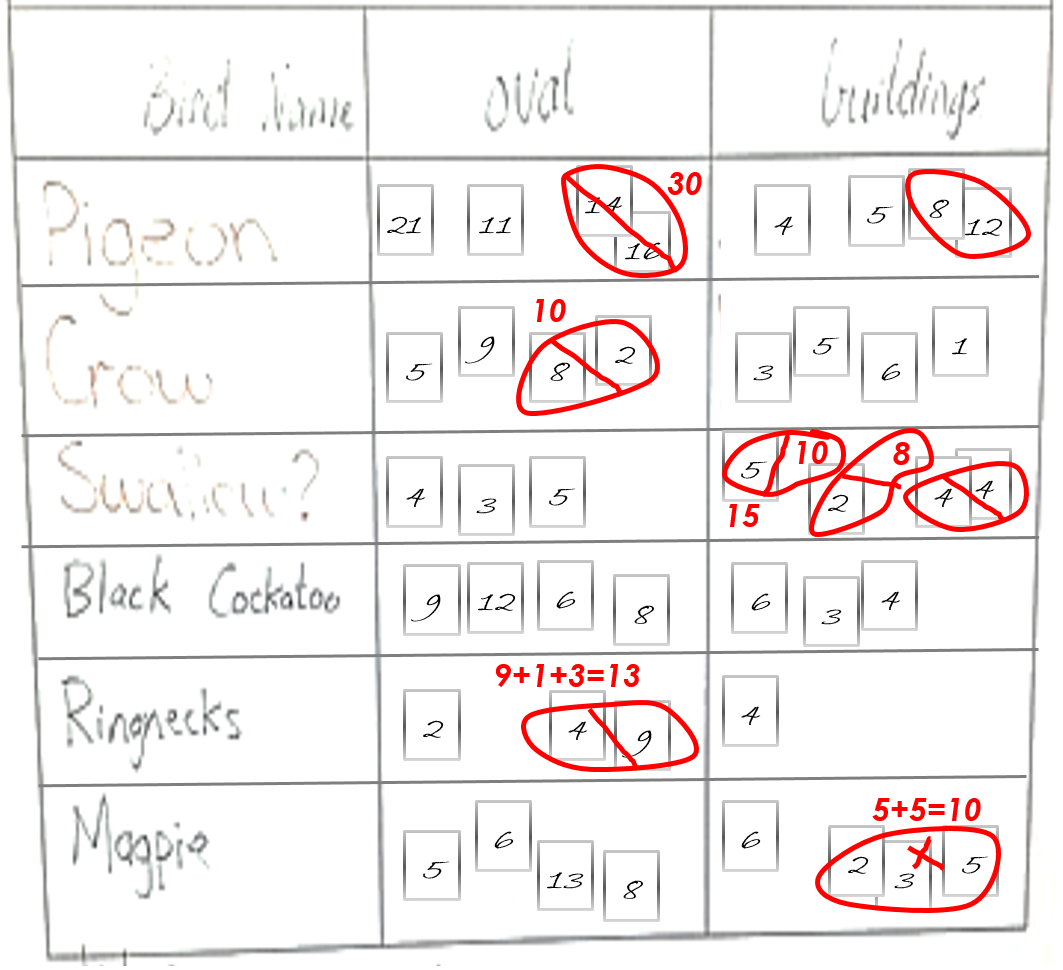 Bird Name oval buildings
Pigeon 21 11 14 16 30 4 5 8 12
Crow 5 9 10 8 2 3 5 6 1
Swallow? 4 3 5 5 10 15 2 8 4 4
Black Cockatoo 9 12 6 8 6 3 4
Ringnecks 2 9+1+3=13 4 9 4
Magpie 5 6 13 8 6 5+5=10 2 3 5